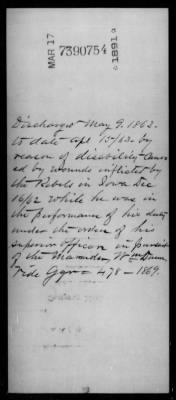 MAR 17
7390754
1891
Discharged May 9. 1862.
to date Apl 15/62. by
reason of disability caus
ed by wounds inflicted by
the Rebels in Iowa Dec
16/62 while he was in
the performance of his duty
under the orders of his
superior officer in pursuit
of the Marauder, Wm Dunn.
Vide G 478 - 1869.